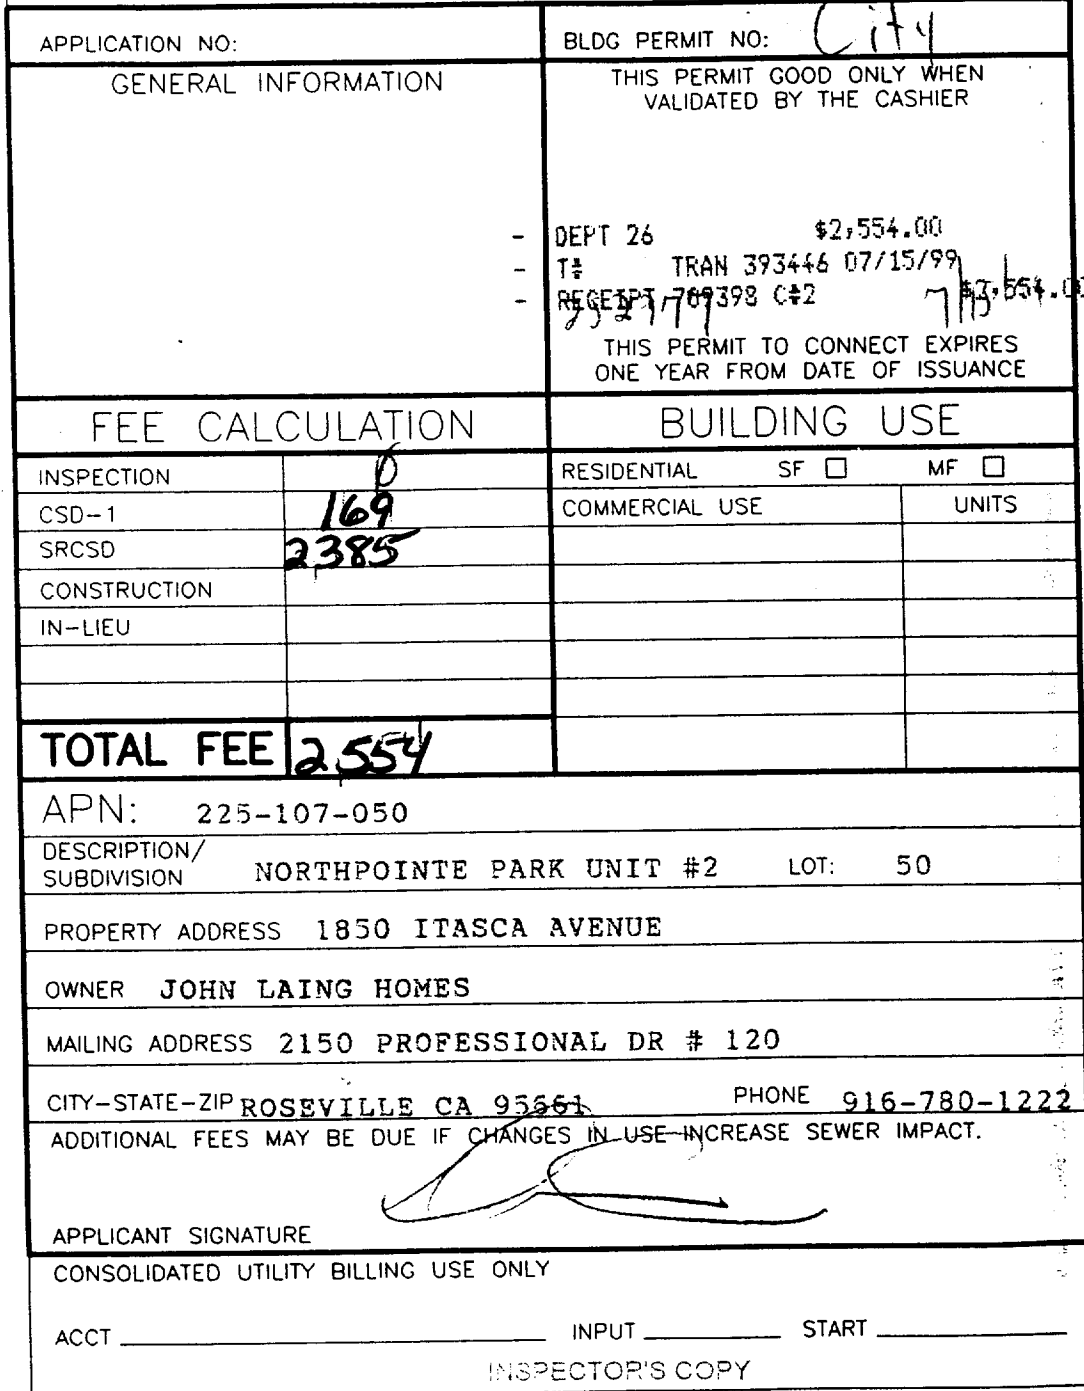 APPLICATION NO:
BLDG PERMIT NO: City
GENERAL INFORMATION
THIS PERMIT GOOD ONLY WHEN
VALIDATED BY THE CASHIER
- DEPT 26 $2,554.00
- T# TRAN 393446 07/15/99
- RECEIPT 769398 C#2
THIS PERMIT TO CONNECT EXPIRES
ONE YEAR FROM DATE OF ISSUANCE
FEE CALCULATION
INSPECTION 0
CSD-1 169
SRCSD 2385
CONSTRUCTION
IN-LIEU
TOTAL FEE 2,554
BUILDING USE
RESIDENTIAL SF MF
COMMERCIAL USE UNITS
APN: 225-107-050
DESCRIPTION/
SUBDIVISION NORTHPOINTE PARK UNIT #2 LOT: 50
PROPERTY ADDRESS 1850 ITASCA AVENUE
OWNER JOHN LAING HOMES
MAILING ADDRESS 2150 PROFESSIONAL DR # 120
CITY-STATE-ZIP ROSEVILLE CA 95661 PHONE 916-780-1222
ADDITIONAL FEES MAY BE DUE IF CHANGES IN USE INCREASE SEWER IMPACT.
APPLICANT SIGNATURE
CONSOLIDATED UTILITY BILLING USE ONLY
ACCT INPUT START
INSPECTOR'S COPY